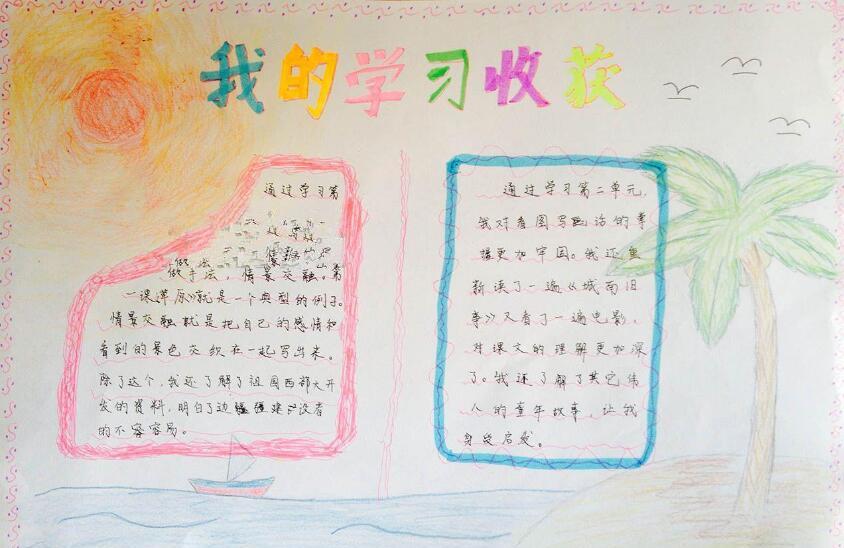 我的学习收获
通过学习第
做手法，情景交融。第
一课《草原》就是一个典型的例子。
情景交融就是把自己的感情和
看到的景色交织在一起写出来。
除了这个，我还了解了祖国西部大开
发的资料，明白了边疆建设者
的不容容易。
通过学习第二单元，
我对看图写话的掌
握更加牢固。我还重
新读了一遍《城南旧
事》又看了一遍电影。
对课文的理解更加深
了。我还了解了其它伟
人的童年故事，让我
身受启发。